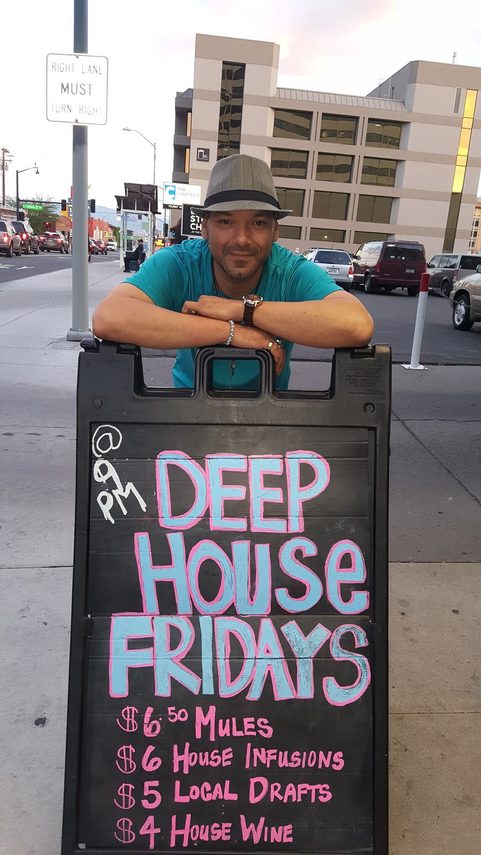 RIGHT LANE
MUST
TURN RIGHT
@
9
PM
DEEP
HOUSE
FRIDAYS
$6.50 MULES
$6 HOUSE INFUSIONS
$5 LOCAL DRAFTS
$4 HOUSE WINE